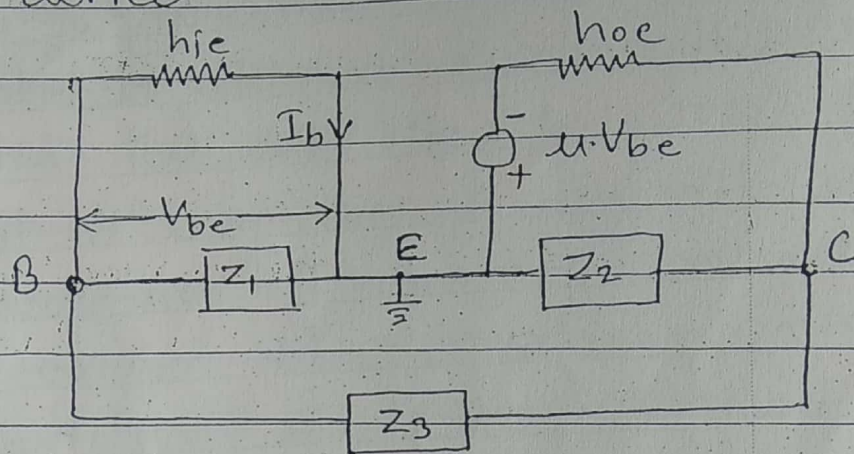 hie
hoe
Ib
-
μ.Vbe
+
Vbe
E
B
Z1
Z2
C
Z3